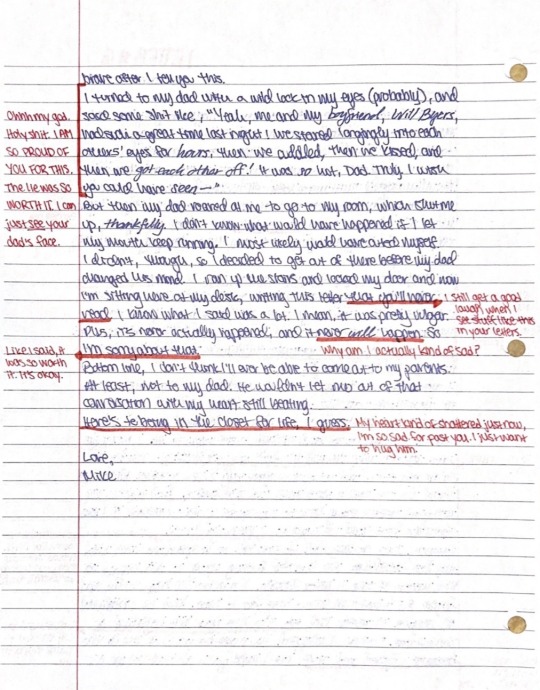 brave after I tell you this.
I turned to my dad with a wild look in my eyes (probably), and
said some shit like, "Yeah, me and my boyfriend, Will Byers,
had such a great time last night! We stared longingly into each
others' eyes for hours, then we cuddled, then we kissed, and
then we got each other off! It was so hot, Dad. Truly. I wish
you could have seen—"
But then my dad roared at me to go to my room, which shut me
up, thankfully. I don't know what would have happened if I let
my mouth keep running. I most likely would have outed myself.
I didn't, though, so I decided to get out of there before my dad
changed his mind. I ran up the stairs and locked my door and now
I'm sitting here at my desk, writing this letter that you'll never
read. I know what I said was a lot. I mean, it was pretty vulgar.
Plus, it's never actually happened, and it never will happen. So
I'm sorry about that.
Bottom line, I don't think I'll ever be able to come out to my parents.
At least, not to my dad. He wouldn't let me out of that
conversation with my heart still beating.
Here's to being in the closet for life, I guess.
Love,
Mike
Ohhh my god.
Holy shit. I AM
SO PROUD OF
YOU FOR THIS.
The lie was SO
WORTH IT. I can
just see your
dad's face.
I still get a good
laugh when I
see stuff like this
in your letters.
Why am I actually kind of sad?
Like I said, it
was so worth
it. It's okay.
My heart kind of shattered just now,
I'm so sad for past you. I just want
to hug him.